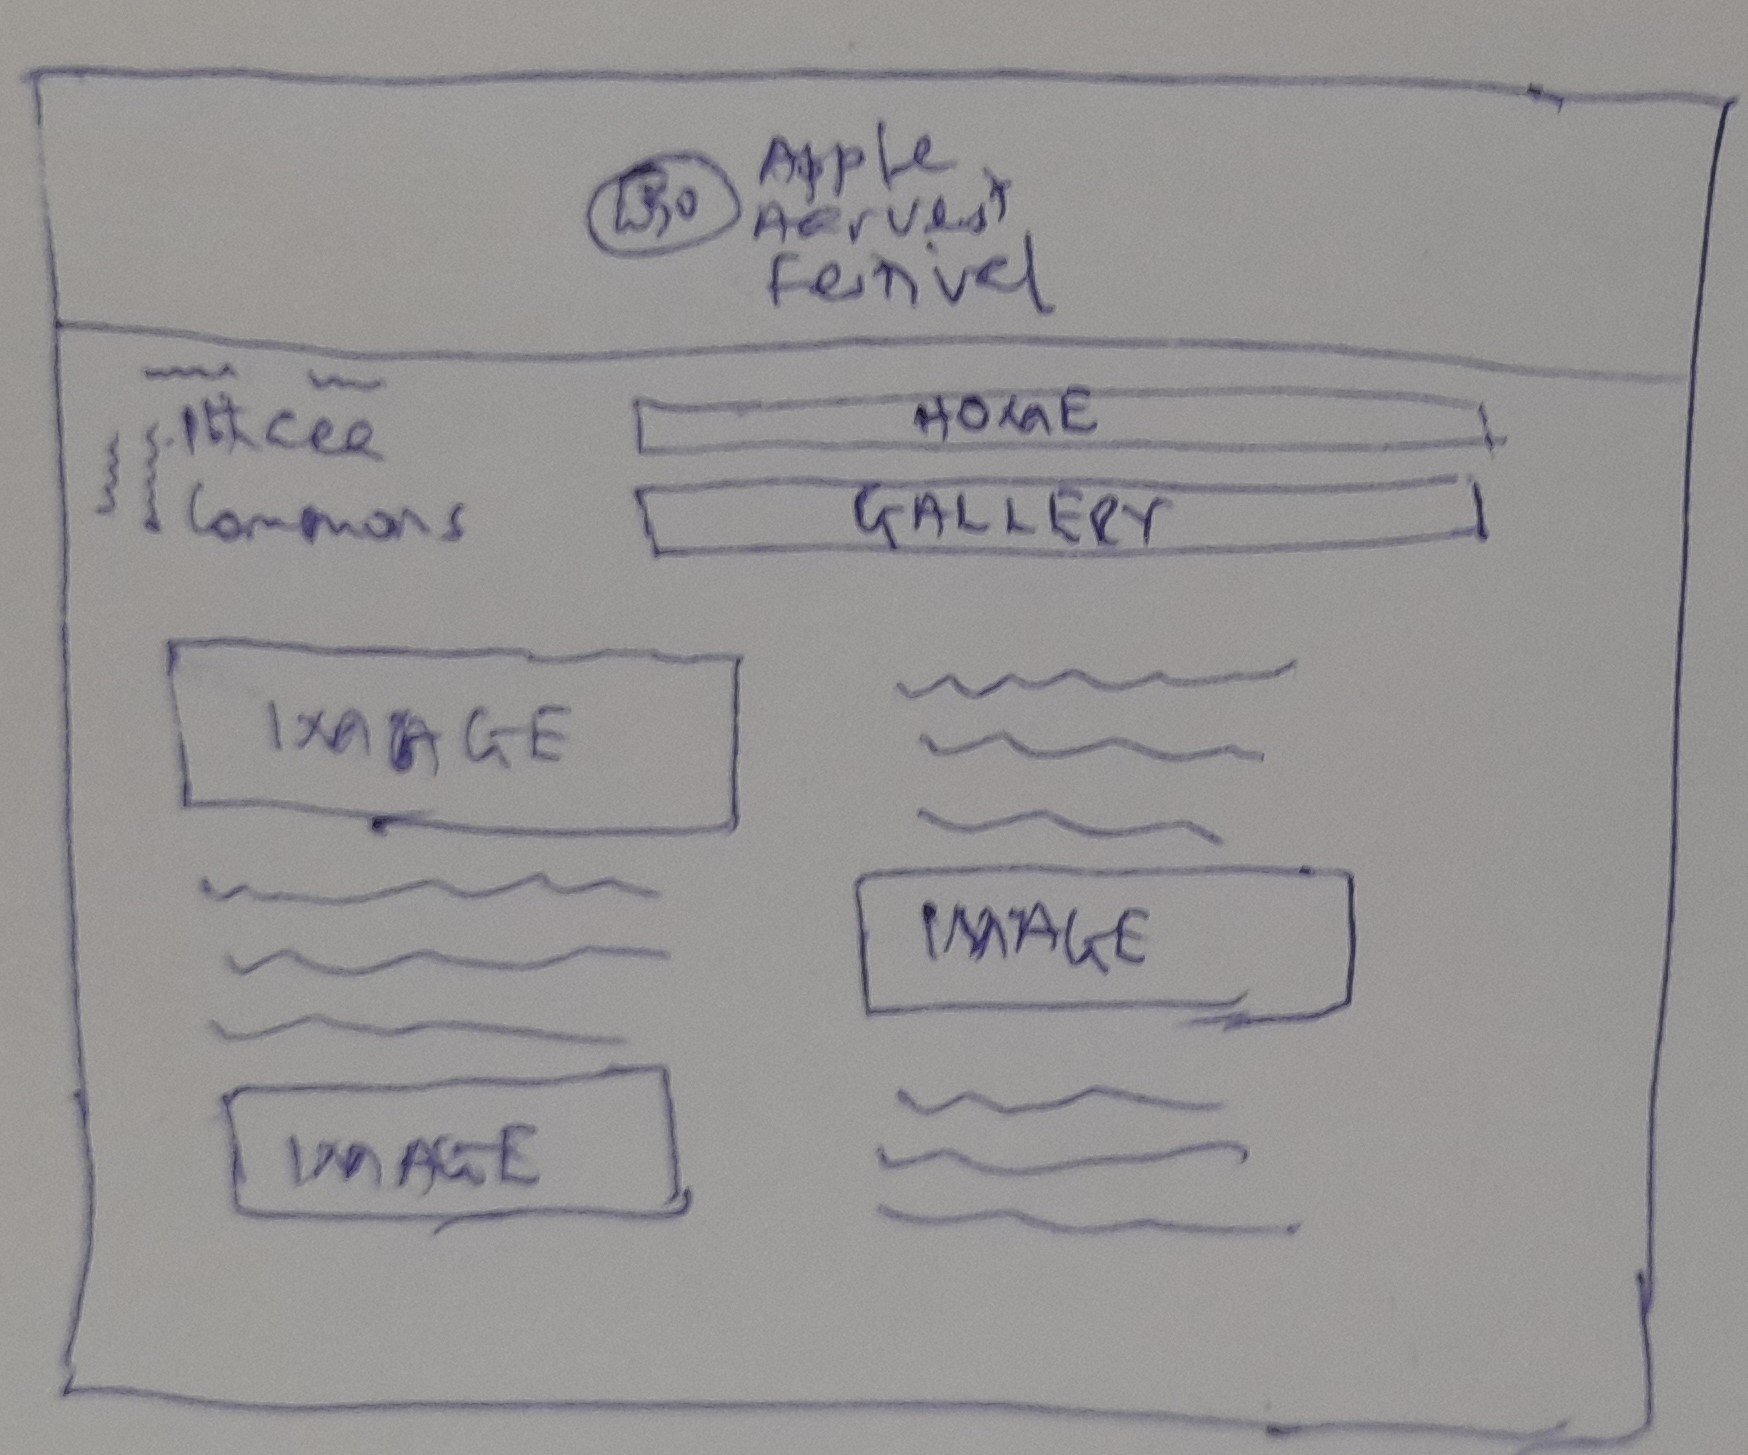 Apple
Harvest
Festival
Ithaca
Commons
HOME
GALLERY
IMAGE
IMAGE
IMAGE